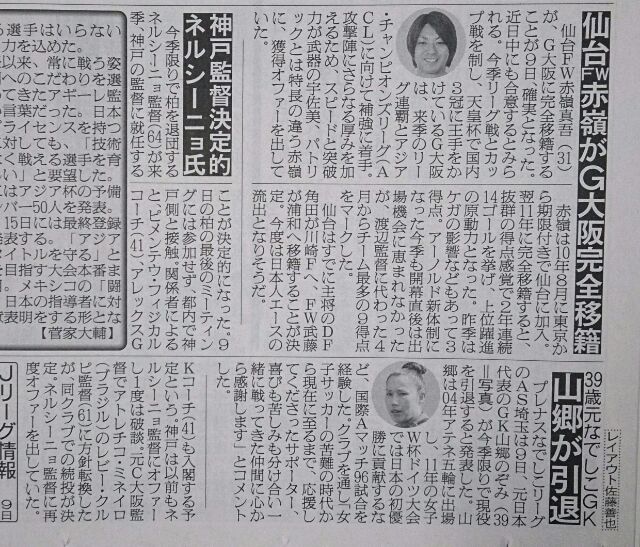 仙台FW赤嶺がG大阪完全移籍
仙台FW赤嶺真吾(31)
が、G大阪に完全移籍する
ことが9日、確実となった。
近日中にも合意するとみら
れる。今季リーグ戦とカッ
プ戦を制し、天皇杯で国内
3冠に王手をか
けているG大阪
は、来季のリー
グ連覇とアジア
チャンピオンズリーグ(A
CL)に向けて補強に着手。
攻撃陣にさらなる厚みを加
えるため、スピードと突破
力が武器の宇佐美、パトリ
ックとは特長の違う赤嶺
に、獲得オファーを出して
いた。
赤嶺は10年8月に東京か
ら期限付きで仙台に加入。
翌11年に完全移籍すると、
抜群の得点感覚で2年連続
14ゴールを挙げ、上位躍進
の原動力となった。昨季は
ケガの影響などもあって3
得点。アーノルド新体制に
なった今季も開幕直後は出
場機会に恵まれなかった
が、渡辺監督に代わった4
月からチーム最多の9得点
をマークした。
仙台はすでに主将のDF
角田が川崎Fへ、FW武藤
が浦和へ移籍することが決
定。今度は日本人エースの
流出となりそうだ。
神戸監督決定的
ネルシーニョ氏
今季限りで柏を退団する
ネルシーニョ監督(64)が来
季、神戸の監督に就任する
ことが決定的になった。9
日の柏の最後のミーティン
グには参加せず、都内で神
戸側と接触。関係者による
とビメンテウ・フィジカル
コーチ(41)アレックスG
Kコーチ(41)も入閣する予
定という。神戸は以前もネ
ルシーニョ監督にオファー
し1度は破談。元G大阪監
督でアトレチコ・ミネイロ
(ブラジル)のレビー・クル
ピ監督(61)に方針転換した
が、同クラブでの続投が決
定。ネルシーニョ監督に再
度オファーを出していた。
39歳元なでしこGK
山郷が引退
レイアウト 佐藤善也
プレナスなでしこリーグ
のAS埼玉は9日、元日本
代表のGK山郷のぞみ(39
＝写真)が今季限りで現役
を引退すると発表した。山
郷は04年アテネ五輪に出場
し、11年の女子
W杯ドイツ大会
では日本の初優
勝に貢献するな
ど、国際Aマッチ96試合を
経験した。クラブを通し「女
子サッカーの苦難の時代か
ら現在に至るまで、応援し
てくださったサポーター、
喜びも苦しみも分け合い一
緒に戦ってきた仲間に心か
ら感謝します」とコメント
した。
る選手はいらない
力を込めた。
来以来、常に戦う姿
へのこだわりを選
てきたアギーレ監
言葉だった。日本
ライセンスを持つ
に対しても、「技術
く戦える選手を育
い」と要望した。
はアジア杯の予備
バー50人を発表。
15日には最終登録
発表する。「アジア
タイトルを守る」と
目指す大会本番ま
月。メキシコの「闘
日本の指導者に対
状表明をする形とな
【菅家大輔】
Jリーグ情報
9日